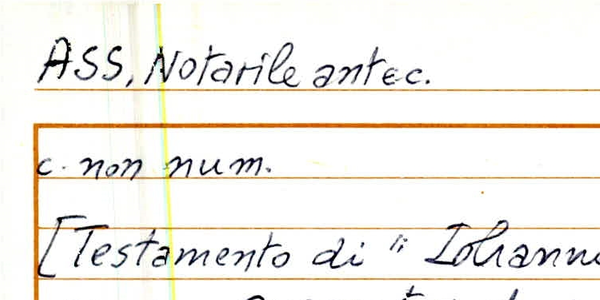 ASS, Notarile antec.
c. non num.
[Testamento di "Iohanne